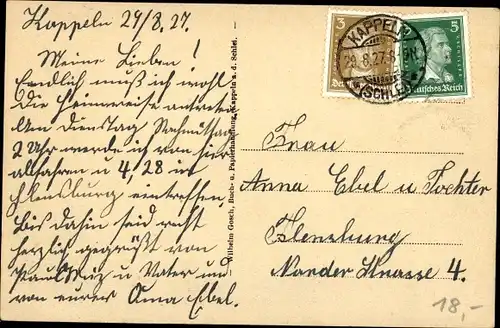 Kappeln 29/8.27.
Meine Lieben!
Endlich muß ich wohl
die Heimreise antreten
Also Dienstag Nachmittag
2 Uhr werde ich von hier
abfahren u 4,28 in
Flensburg eintreffen,
bis dahin seid recht
herzlich gegrüßt von
Paul u Vater und
von eurer Anna Ebel.
Wilhelm Gosch, Buch- u. Papierhandlung, Kappeln a. d. Schlei.
3
5
Deutsches Reich
KAPPELN
29.8.27
(SCHLEI)
Frau
Anna Ebel u Tochter
Flensburg
Norder Strasse 4.
18,-